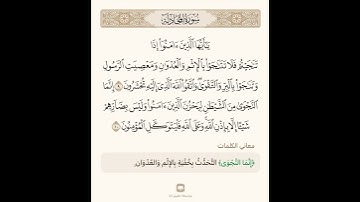 سُورَةُ المُجَادلة
يَٰٓأَيُّهَا ٱلَّذِينَ ءَامَنُوٓاْ إِذَا
تَنَٰجَيۡتُمۡ فَلَا تَتَنَٰجَوۡاْ بِٱلۡإِثۡمِ وَٱلۡعُدۡوَٰنِ وَمَعۡصِيَتِ ٱلرَّسُولِ
وَتَنَٰجَوۡاْ بِٱلۡبِرِّ وَٱلتَّقۡوَىٰۖ وَٱتَّقُواْ ٱللَّهَ ٱلَّذِيٓ إِلَيۡهِ تُحۡشَرُونَ ٩ إِنَّمَا
ٱلنَّجۡوَىٰ مِنَ ٱلشَّيۡطَٰنِ لِيَحۡزُنَ ٱلَّذِينَ ءَامَنُواْ وَلَيۡسَ بِضَآرِّهِمۡ
شَيۡـًٔا إِلَّا بِإِذۡنِ ٱللَّهِۚ وَعَلَى ٱللَّهِ فَلۡيَتَوَكَّلِ ٱلۡمُؤۡمِنُونَ ١٠
معاني الكلمات
﴿إِنَّمَا النَّجْوَى﴾ التَّحَدُّثُ بِخُفْيَةٍ بِالإِثْمِ وَالعُدْوَانِ.